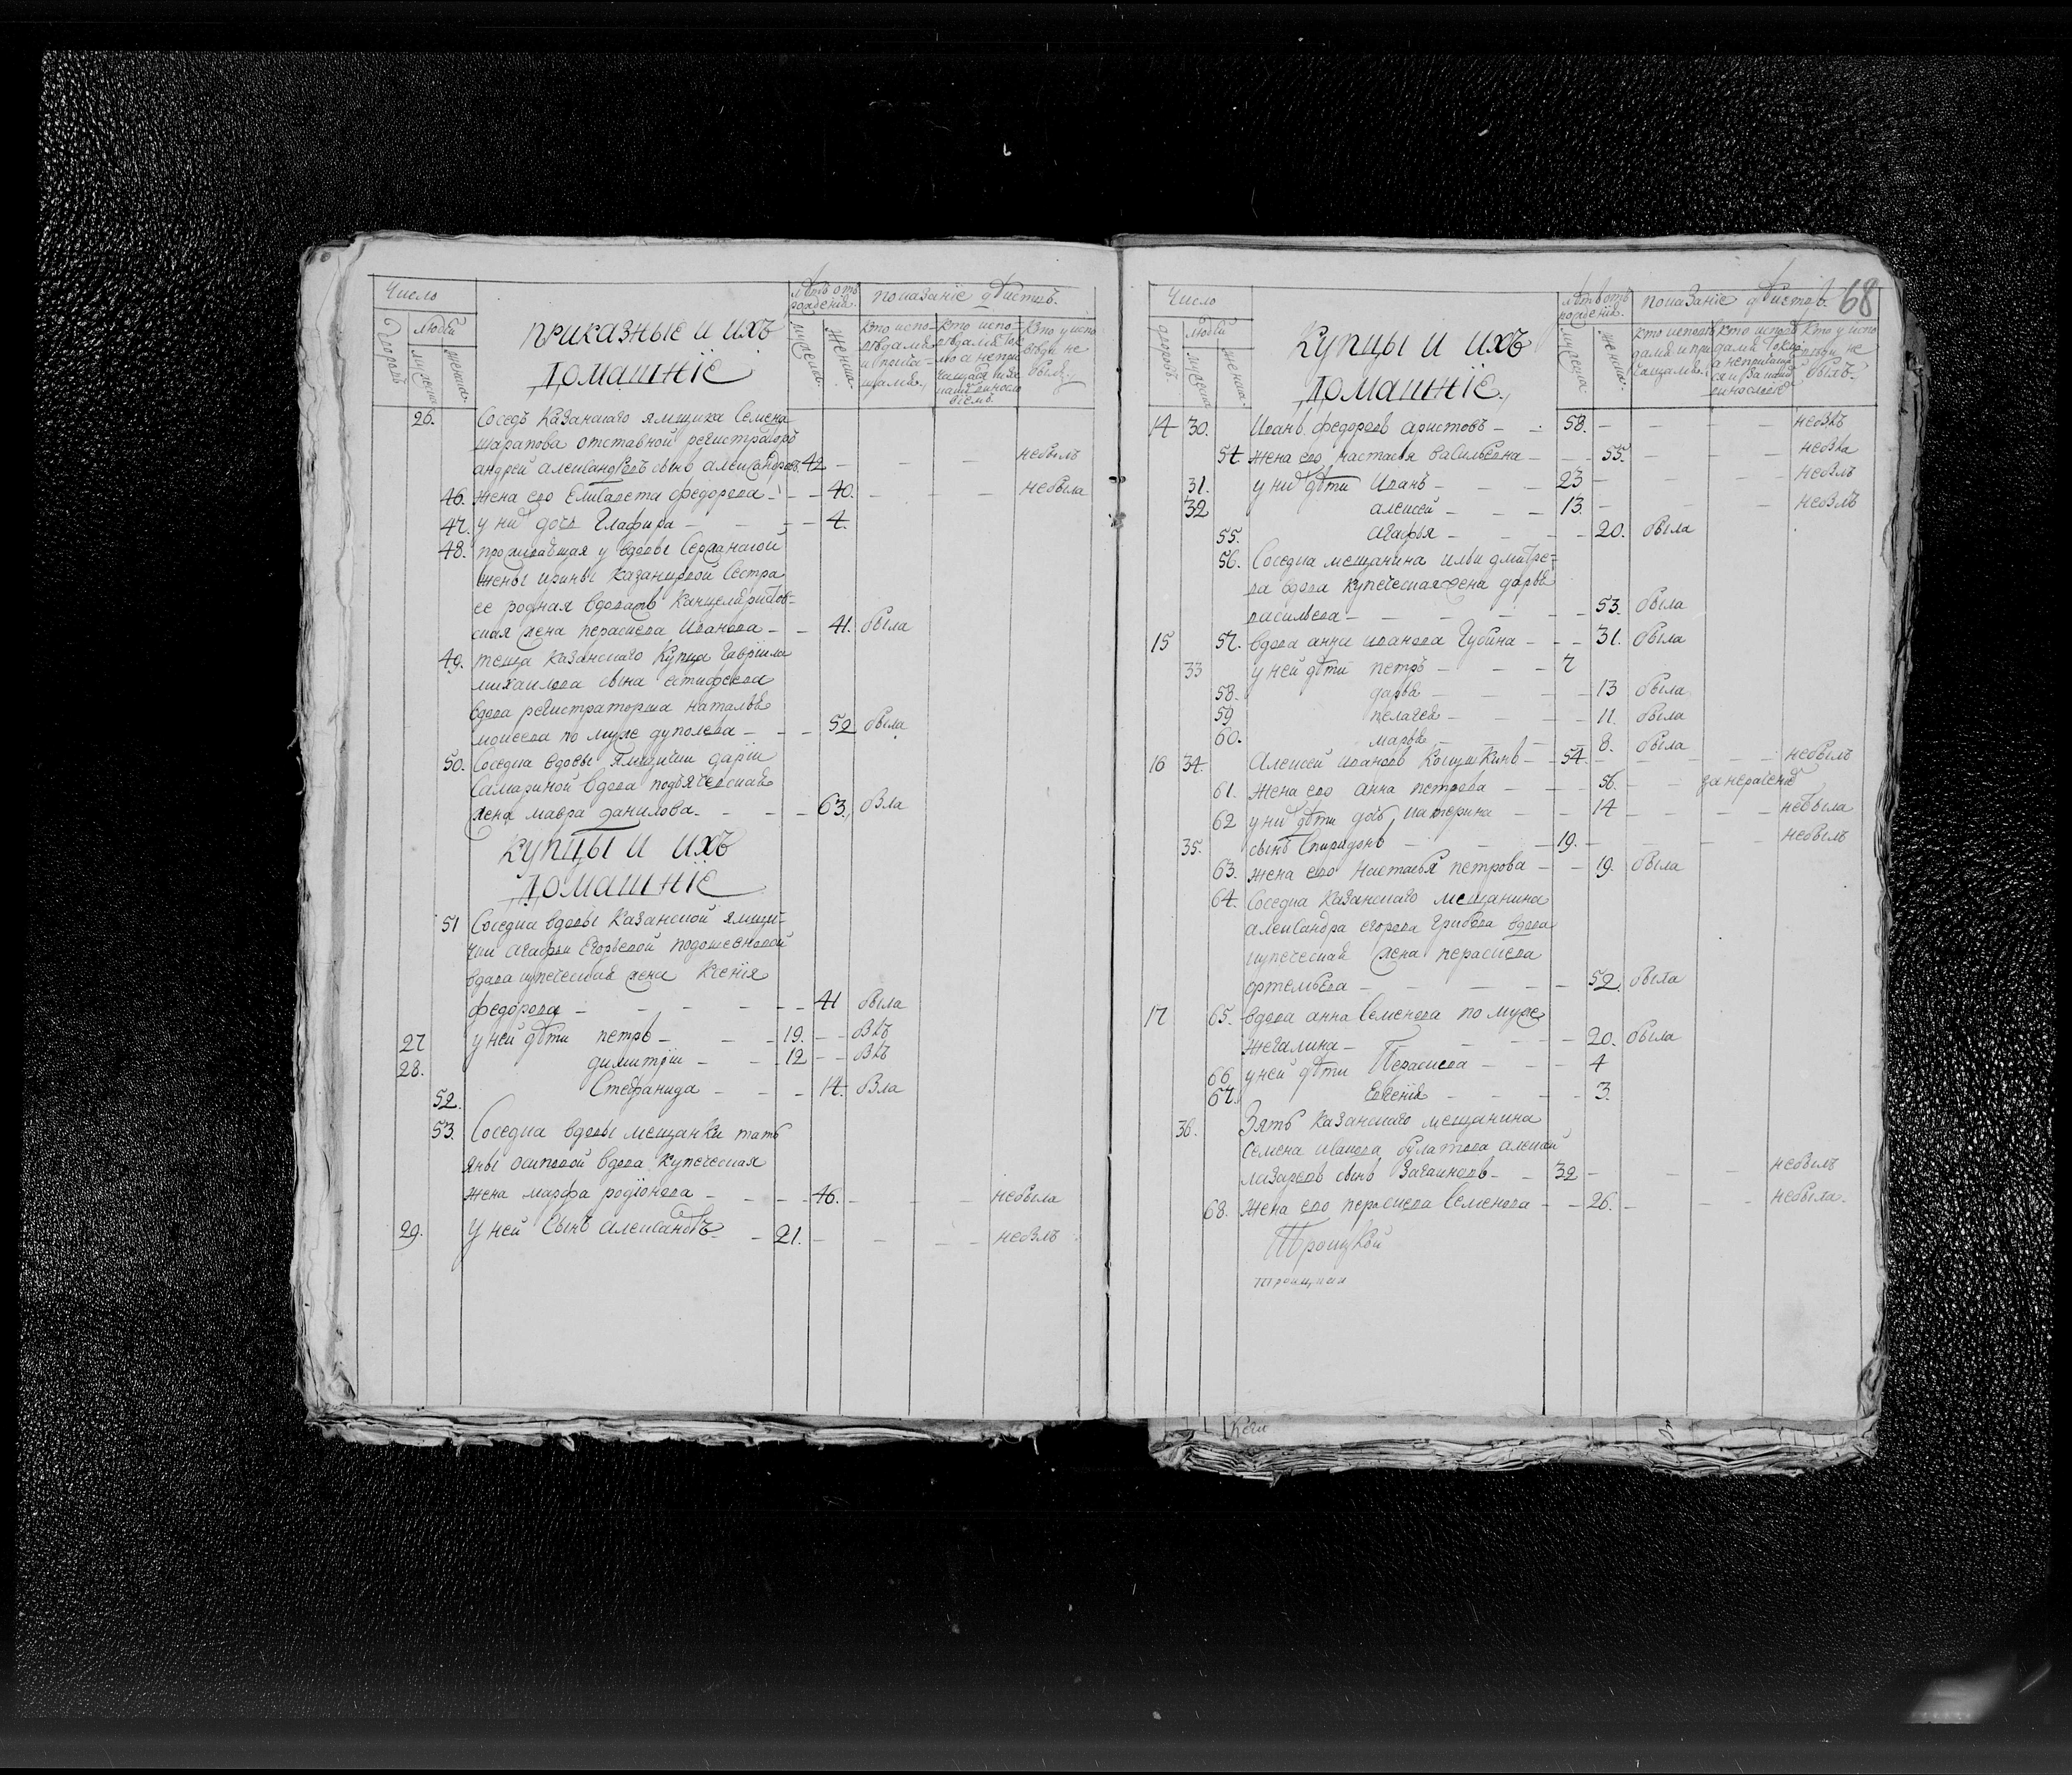 Число
приказные и ихъ
домашніе
лѣтъ отъ рожденія.
показаніе дѣйствъ.
дворовъ
людей
мужеска
женска
мужеска
женска
кто испо-
вѣдался
и прича-
щался
кто испо-
вѣдался
кто у испо
вѣди не
былъ
26. Сосѣдъ Казанскаго ямщика Семена
шарапова отставной регистраторъ
андрей александровъ сынъ александровъ 42 — — — небылъ
46. жена его Елисавета федорова — — 40. — — — небыла
47. у них дочь Глафира — — — 4.
48. проживавшая у вдовы
жены ирины казанцовой сестра
ее родная вдовая канцеляристов-
ская жена параскева Иванова — — 41. была
49. теща казанскаго купца Гаврила
михаилова сына
вдова регистраторша наталья
моисеева по муже дуполева — — 52 была
50. Соседка вдовы ямщички дарьи
Самариной вдова подъяческая
жена мавра данилова. — — — 63. бла
Купцы и ихъ
домашніе
51 Соседка вдовы казанской ямщи-
чки агафьи Егорьевой подошевновой
вдова купеческая жена Ксенія
федорова — — — — — 41 была
27 у ней дѣти петръ — — — 19. — — блъ
28. димитрій — — 12 — — блъ
52. Стефанида — — — 14. бла
53. Соседка вдовы мещанки тать
яны осиповой вдова купеческая
жена марфа родіонова — — — 46. — — — небыла
29. у ней сынъ александръ — 21. — — — — неблъ
68
Число
Купцы и ихъ
домашніе.
лѣтъ отъ рожденія.
показаніе дѣйствъ.
дворовъ.
людей
мужеска
женска.
мужеска
женска.
кто исповѣ
дался и при
чащался
кто у испо
вѣди не
былъ.
14 30. Иванъ федоровъ аристовъ — — 58. — — — — неблъ
54 жена его настасья васильевна — — — 55. — — — небла
31. у них дѣти Иванъ — — — 23 — — — — неблъ
32 алексей — — — 13. — — — неблъ
55. агафья — — — — 20. была
56. Соседка мещанина ильи дмитре-
ва вдова купеческая жена дарья
васильева — — — — — 53. была
15 57. вдова анна иванова Губина — — — 31. была
33 у ней дѣти петръ — — — 7
58. дарья — — — — 13 была
59 пелагея — — — — 11. была
60. марья — — — — 8. была
16 34. Алексей ивановъ Кошушкинъ — — 54. — — — — небылъ
61. жена его анна петрова — — — 56. — — за нераченіе
62 у них дѣти дочь катерина — — 14 — — — — небыла
35. сынъ Спиридонъ — — — 19. — — — небылъ
63. жена его Настасья петрова — — 19. была
64. Соседка казанскаго мещанина
александра егорова грибова вдова
купеческая жена параскева
ортемьева — — — — — 52. была
17 65. вдова анна Семенова по муже
жегалина — — — — — 20. была
66 у ней дѣти Параскева — — — 4
67. Евгенія — — — — 3.
36. Зять казанскаго мещанина
Семена иванова булатова алексей
лазаревъ сынъ — — 32 — — — — небылъ
68. жена его параскева Семенова — — 26. — — — небыла.
Троицкой
троицкои